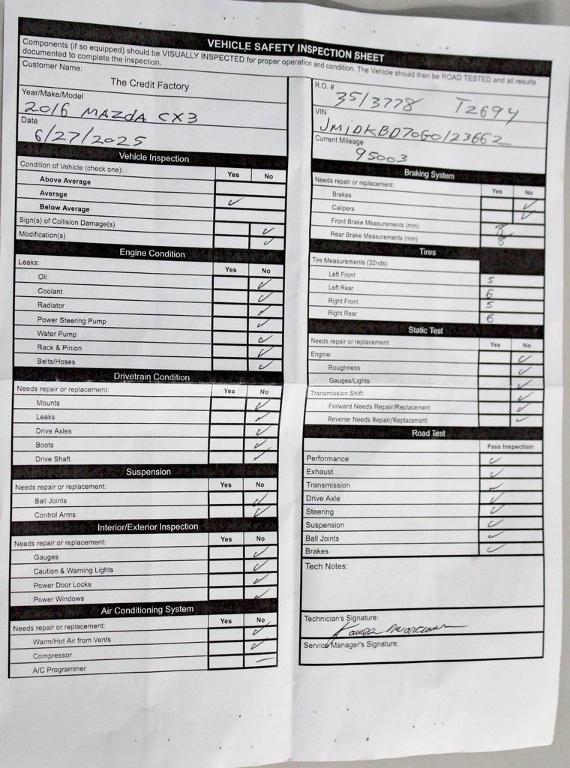 VEHICLE SAFETY INSPECTION SHEET
Components (if so equipped) should be VISUALLY INSPECTED for proper operation and condition. The Vehicle should then be ROAD TESTED and all results
documented to complete the inspection.
Customer Name:
The Credit Factory
Year/Make/Model
2016 MAZdA CX3
Date
6/27/2025
Vehicle Inspection
Condition of Vehicle (check one): Yes No
Above Average
Average ✓
Below Average
Sign(s) of Collision Damage(s) ✓
Modification(s) ✓
Engine Condition
Leaks: Yes No
Oil ✓
Coolant ✓
Radiator ✓
Power Steering Pump ✓
Water Pump ✓
Rack & Pinion ✓
Belts/Hoses ✓
Drivetrain Condition
Needs repair or replacement: Yes No
Mounts ✓
Leaks ✓
Drive Axles ✓
Boots ✓
Drive Shaft ✓
Suspension
Needs repair or replacement: Yes No
Ball Joints ✓
Control Arms ✓
Interior/Exterior Inspection
Needs repair or replacement: Yes No
Gauges ✓
Caution & Warning Lights ✓
Power Door Locks ✓
Power Windows ✓
Air Conditioning System
Needs repair or replacement: Yes No
Warm/Hot Air from Vents ✓
Compressor ✓
A/C Programmer —
R.O. #
35/3778 T2694
VIN
JM1DKBD70G0123662
Current Mileage
95003
Braking System
Needs repair or replacement: Yes No
Brakes ✓
Calipers ✓
Front Brake Measurements (mm) 8
Rear Brake Measurements (mm) 8
Tires
Tire Measurements (32nds)
Left Front 5
Left Rear 6
Right Front 5
Right Rear 6
Static Test
Needs repair or replacement: Yes No
Engine: ✓
Roughness ✓
Gauges/Lights ✓
Transmission Shift: ✓
Forward Needs Repair/Replacement ✓
Reverse Needs Repair/Replacement ✓
Road Test
Pass Inspection
Performance ✓
Exhaust ✓
Transmission ✓
Drive Axle ✓
Steering ✓
Suspension ✓
Ball Joints ✓
Brakes ✓
Tech Notes:
Technician's Signature:
Service Manager's Signature: